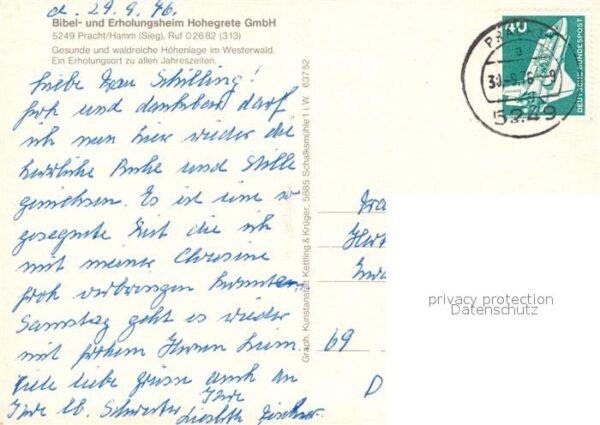 d. 29.9.76.
Bibel- und Erholungsheim Hohegrete GmbH
5249 Pracht/Hamm (Sieg), Ruf 02682 (313)
Gesunde und waldreiche Höhenlage im Westerwald.
Ein Erholungsort zu allen Jahreszeiten.
Liebe Frau Schilling!
Froh und dankbar darf
ich nun hier wieder die
herrliche Ruhe und Stille
geniessen. Es ist eine so
gesegnete Zeit die ich
mit meiner
froh verbringen
Samstag geht es wieder
mit frohem Herzen heim.
Viele liebe Grüsse auch an
Ihre lb. Schwester Ihre
Graph. Kunstanstalt Kettling & Krüger, 5885 Schalksmühle 1 i. W. 63752
40
DEUTSCHE BUNDESPOST
30.-9.76-9
5249
Frau
69
D
privacy protection
Datenschutz